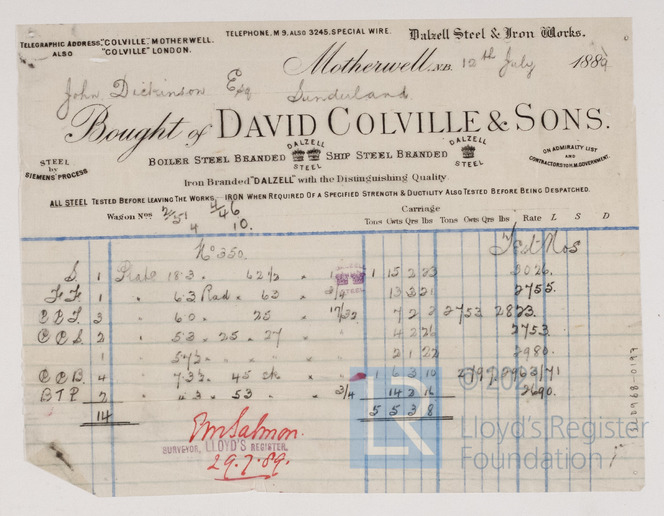 TELEGRAPHIC ADDRESS, "COLVILLE", MOTHERWELL.
ALSO "COLVILLE" LONDON.
TELEPHONE, M 9, ALSO 3245, SPECIAL WIRE.
Dalzell Steel & Iron Works.
Motherwell, N.B. 12th July 1889
John Dickinson Esq Sunderland
Bought of DAVID COLVILLE & SONS.
STEEL by SIEMENS' PROCESS
BOILER STEEL BRANDED DALZELL STEEL SHIP STEEL BRANDED DALZELL STEEL
ON ADMIRALTY LIST AND CONTRACTORS TO H.M. GOVERNMENT.
Iron Branded "DALZELL" with the Distinguishing Quality.
ALL STEEL TESTED BEFORE LEAVING THE WORKS. IRON WHEN REQUIRED OF A SPECIFIED STRENGTH & DUCTILITY ALSO TESTED BEFORE BEING DESPATCHED.
Wagon Nos
4 10.
Carriage
Tons Cwts Qrs lbs Tons Cwts Qrs lbs Rate L S D
No 350. Test Nos
S 1 Plate 18.3 " 62½ " 1 15 2 23 2026
FF 1 " 6.3 Rad " 63 " 3/4 13 3 21 2755.
3 " 6.0 " 25 " 17/32 7 2 2753 2823.
CCS 2 " 53 " 25 " 27 " " 4 2 26 2753
1 " " " " " 2 1 22 2980.
CCB 4 " 45 ck " " 1 6 3 10 2797
BTP 2 " 53 " 3/4 14 2 16 2690.
14 5 5 3 8
SURVEYOR, LLOYD'S REGISTER.
29.7.89.
Salmon.
© Lloyd's Register Foundation
LR